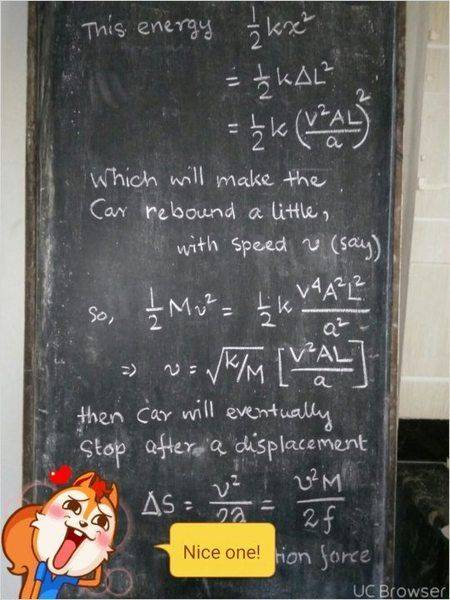 This energy ½kx²
= ½kΔL²
= ½k (V²AL/a)²
Which will make the
Car rebound a little,
with speed v (say)
So, ½Mv² = ½k V⁴A²L²/a²
⇒ v = √K/M [V²AL/a]
then car will eventually
Stop after a displacement
ΔS = v²/2a = v²M/2f
Nice one!
force
UC Browser